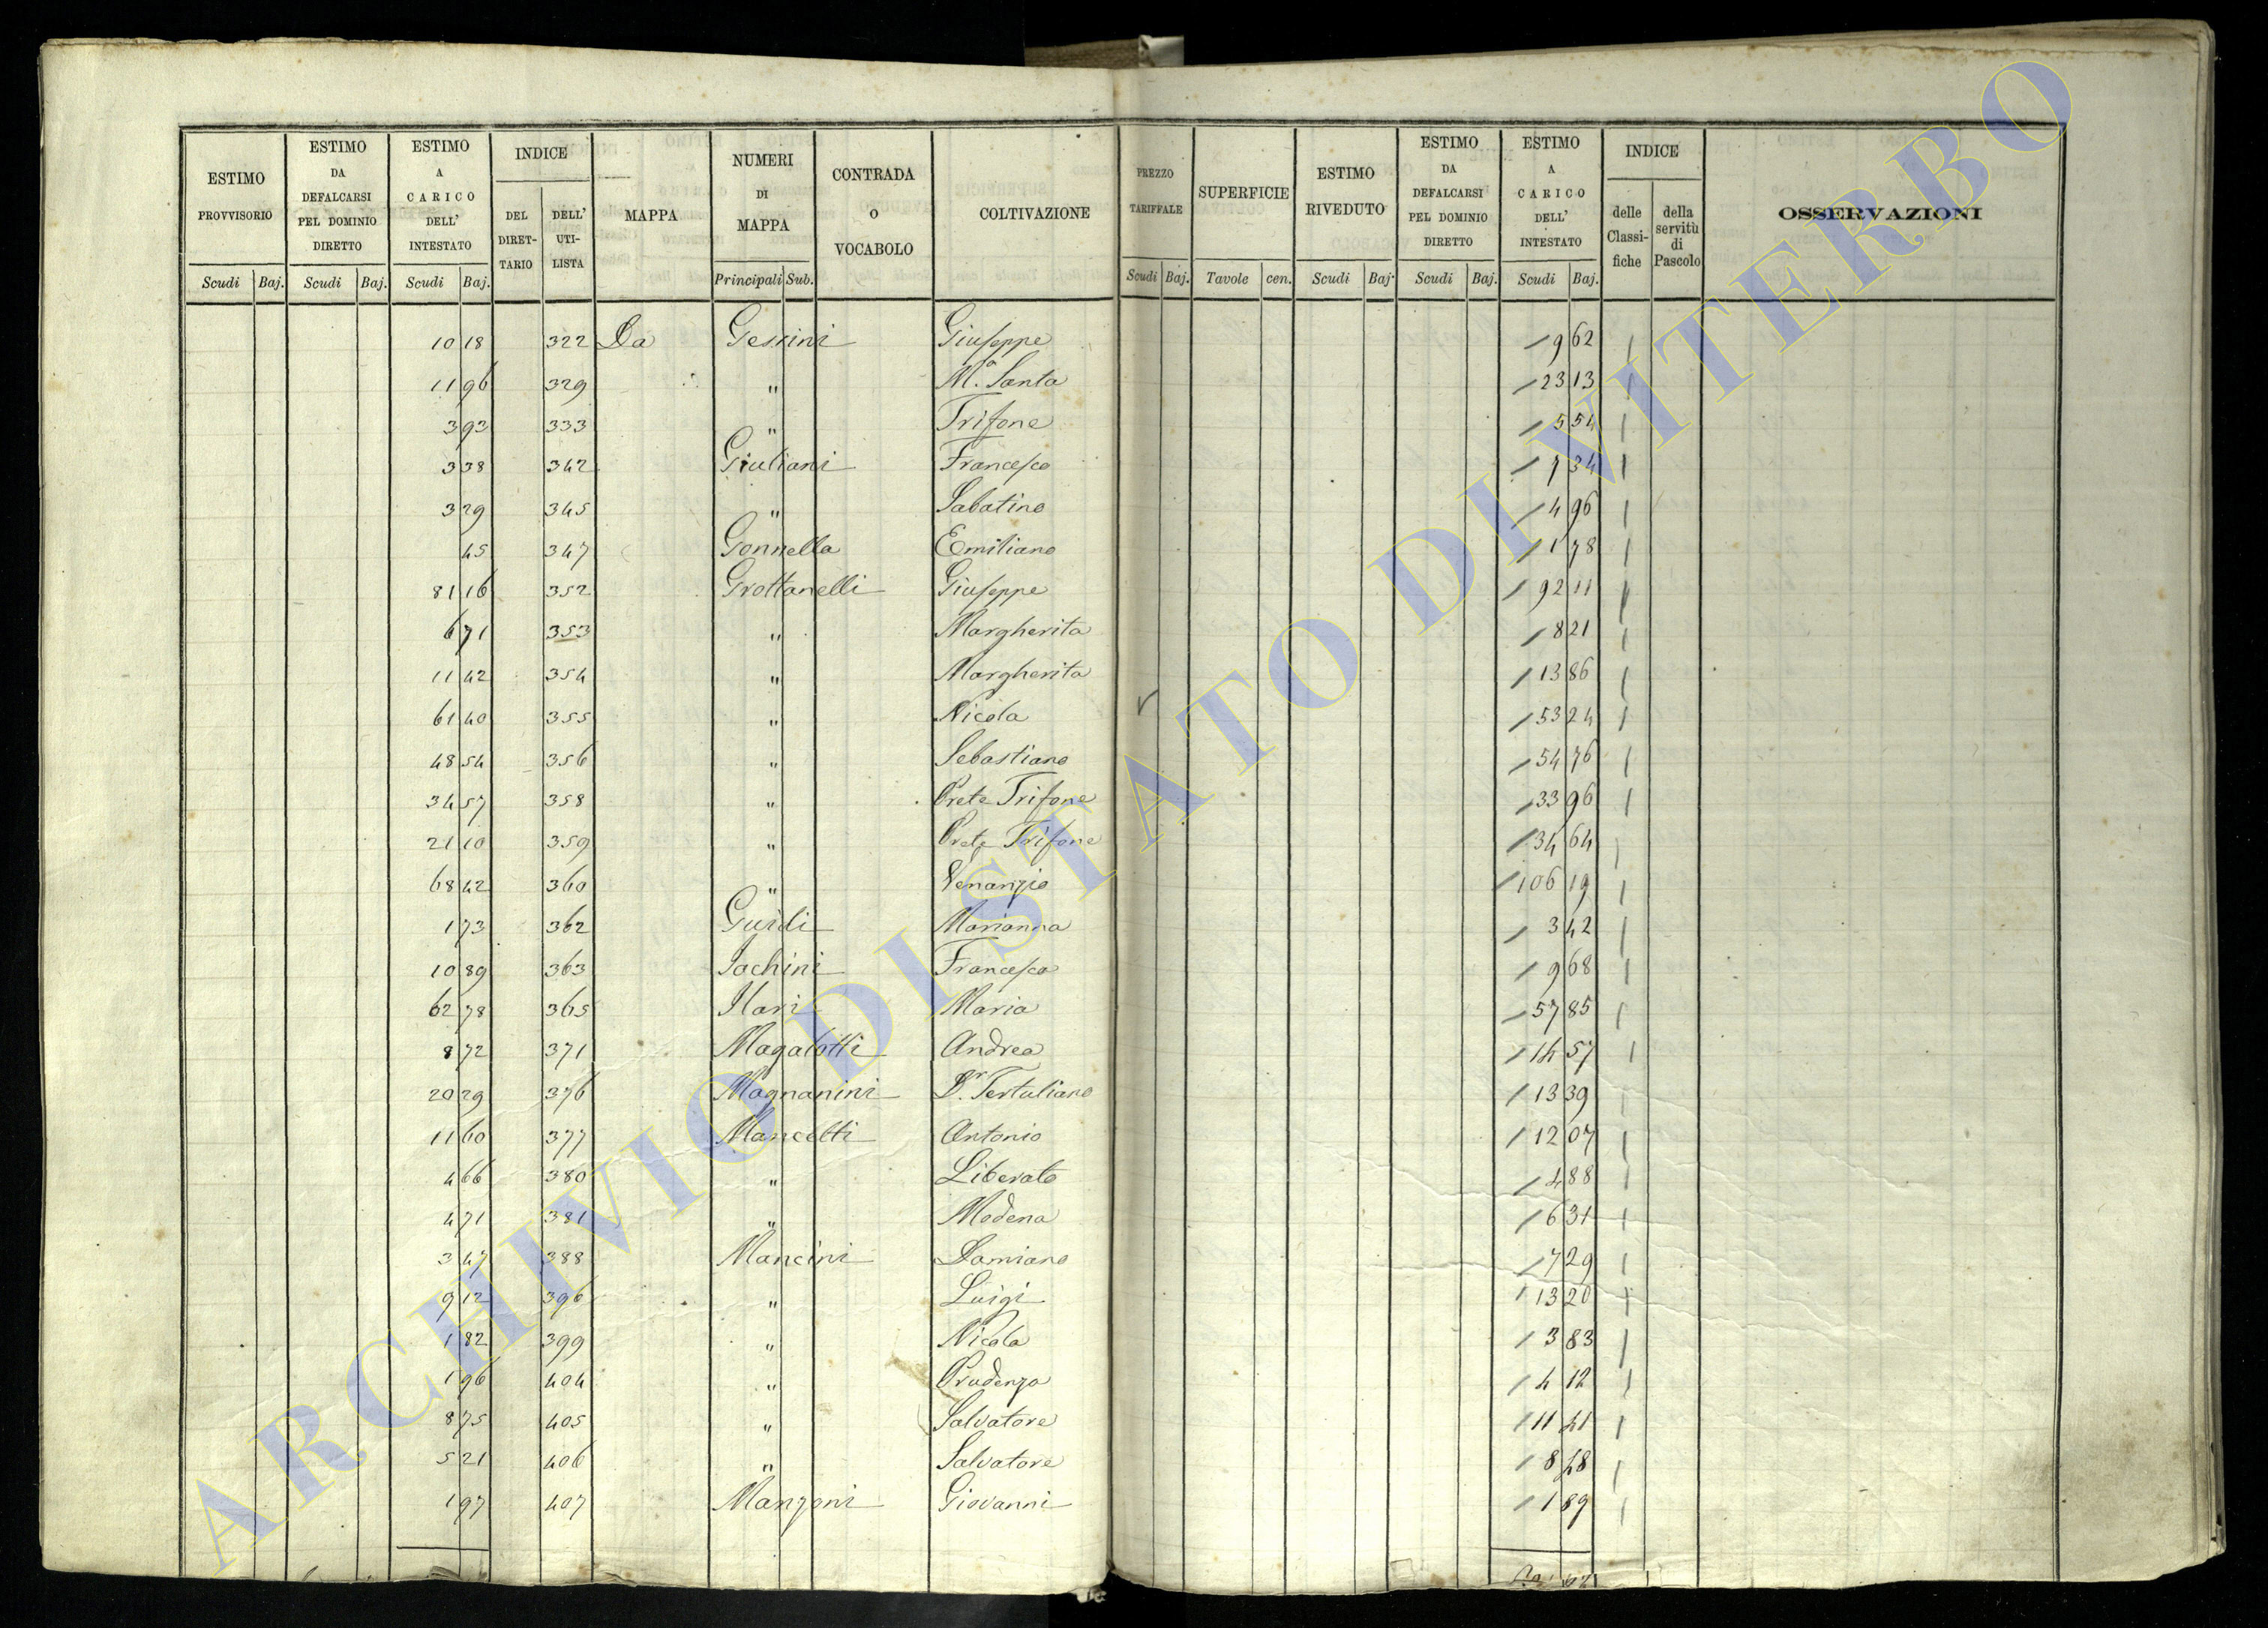 ESTIMO PROVVISORIO | ESTIMO DA DEFALCARSI PEL DOMINIO DIRETTO | ESTIMO A CARICO DELL' INTESTATO | INDICE DEL DIRETTARIO | DELL' UTILISTA | MAPPA | NUMERI DI MAPPA | CONTRADA O VOCABOLO | COLTIVAZIONE | PREZZO TARIFFALE | SUPERFICIE | ESTIMO RIVEDUTO | ESTIMO DA DEFALCARSI PEL DOMINIO DIRETTO | ESTIMO A CARICO DELL' INTESTATO | INDICE delle Classifiche | della servitù di Pascolo | OSSERVAZIONI
Scudi Baj. Scudi Baj. Scudi Baj. Principali Sub. Scudi Baj. Tavole cen. Scudi Baj. Scudi Baj. Scudi Baj.
10 18 322 Da Gessini Giuseppe 9 62
11 96 329 " M.a Santa 23 13
3 93 333 " Trifone 5 54
3 38 342 Giuliani Francesco 7 34
3 29 345 " Sabatino 4 96
45 347 Gonnella Emiliano 1 78
81 16 352 Grottanelli Giuseppe 92 11
6 71 353 " Margherita 8 21
11 42 354 " Margherita 13 86
61 40 355 " Nicola 53 24
48 54 356 " Sebastiano 54 76
34 57 358 " Prete Trifone 33 96
21 10 359 " Prete Trifone 34 64
68 42 360 " Venanzio 106 19
1 73 362 Guidi Marianna 3 42
10 89 363 Iachini Francesco 9 68
62 78 365 Ilari Maria 57 85
8 72 371 Magalotti Andrea 14 57
20 29 376 Magnanini D.r Tertuliano 13 39
11 60 377 Mancetti Antonio 12 07
4 66 380 " Liberato 4 88
4 71 381 " Modena 6 31
3 47 388 Mancini Damiano 7 29
9 12 396 " Luigi 13 20
1 82 399 " Nicola 3 83
1 96 404 " Prudenza 4 12
8 75 405 " Salvatore 11 41
5 21 406 " Salvatore 8 48
1 97 407 Manzoni Giovanni 1 89
ARCHIVIO DI STATO DI VITERBO